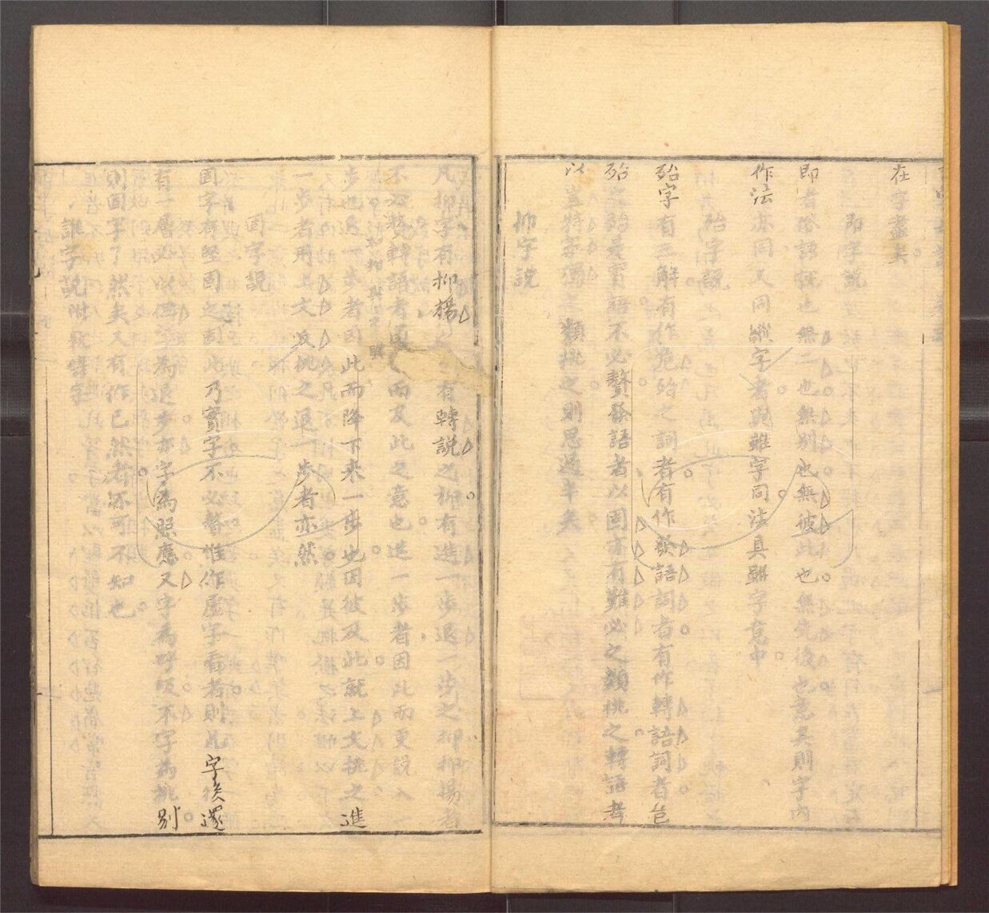 在字盡矣
即字說
即者俗語就也無二也無別也無彼此也無先後也意與則字內
作法亦同又同縱字者與雖字同法具雖字意中
殆字說
殆字有三解有作危殆之詞者有作於語詞者有作轉語詞者
殆之殆是實語不必贅發語者以固亦有難必之類挑之轉語者
以豈特字獨之類挑之則思過半矣
抑字說
凡抑字有抑揚有轉說之抑有進一步退一步之抑抑揚者
不必贅轉語者因而及此之意也進一步者因此而更說入一
步也退一步者因此而降下來一步也因彼及此就上文挑之進
一步者用上文反挑之退一步者亦然
固字說
固字有堅固之固此乃實字不必贅惟作虛字看者則字矣還
有一層必以固字為退步亦字為照應又字為呼吸不字為挑別
則固字了然矣又有作已然者不可不知也
誰字說附孰疇字